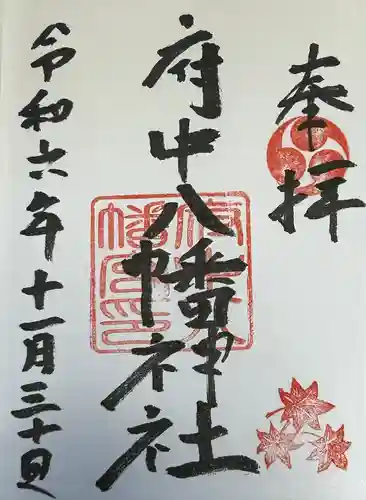 奉拝
府中八幡神社
令和六年十一月三十日